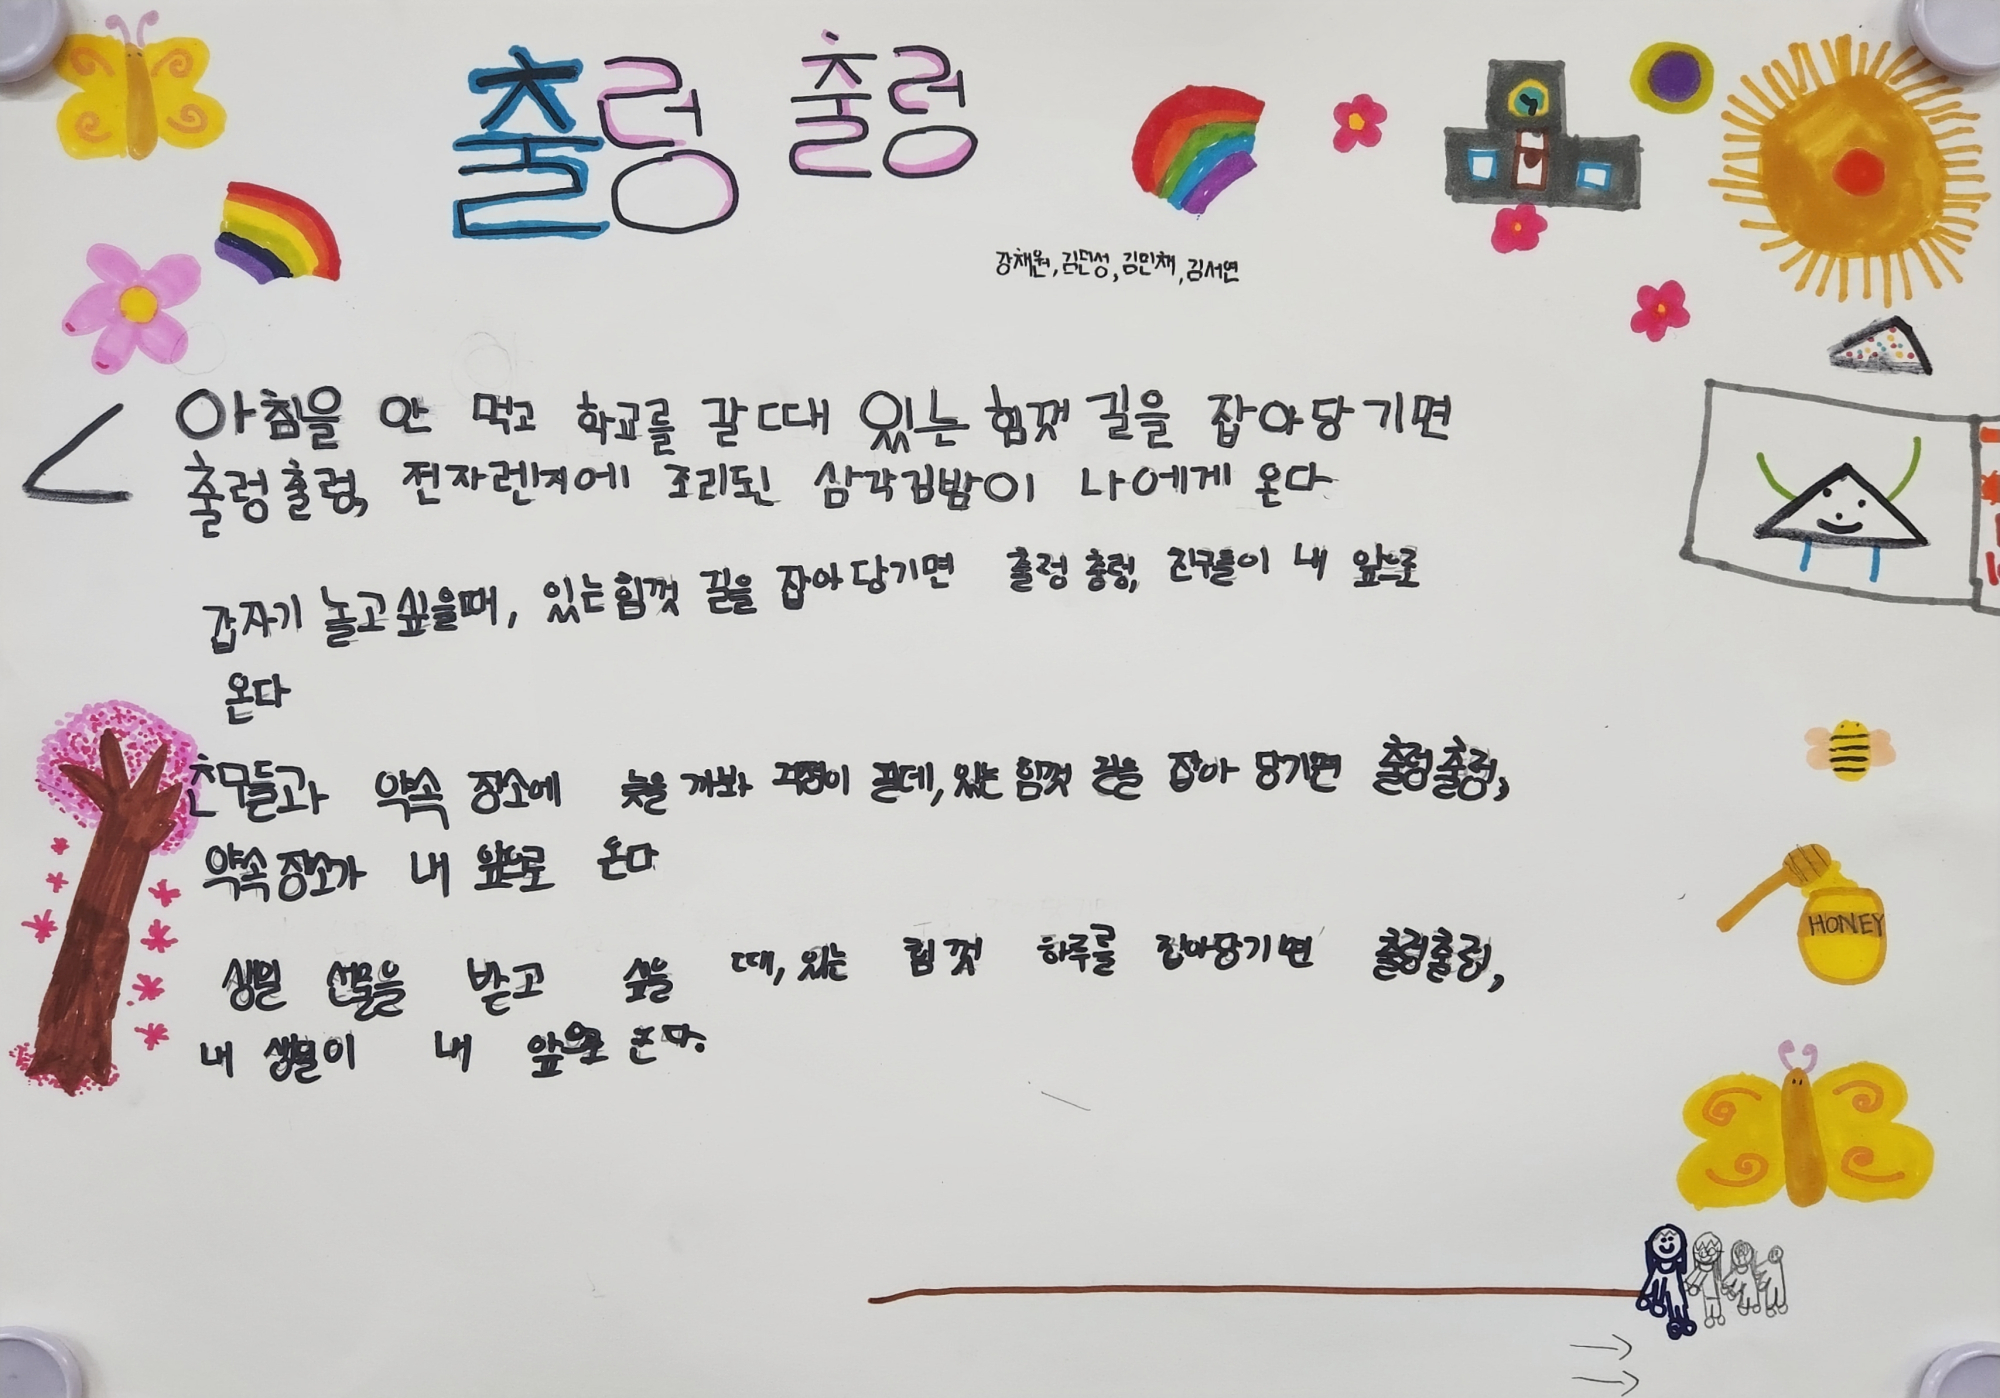 출렁 출렁
강채원, 김던성, 김민채, 김서연
아침을 안 먹고 학교를 갈 때 있는 힘껏 길을 잡아당기면
출렁출렁, 전자렌지에 조리된 삼각김밥이 나에게 온다
갑자기 놀고싶을때, 있는힘껏 길을 잡아당기면 출렁 출렁, 친구들이 내 앞으로
온다
친구들과 약속 장소에 늦을 까봐 걱정이 될데, 있는 힘껏 길을 잡아 당기면 출렁출렁,
약속장소가 내 앞으로 온다
생일 선물을 받고 싶을 때, 있는 힘껏 하루를 잡아당기면 출렁출렁,
내 생일이 내 앞으로 온다.
HONEY